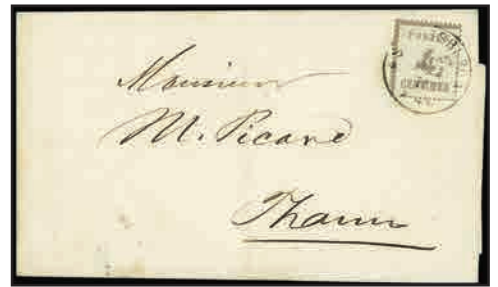 POSTES
4
CENTIMES
Monsieur
M. Picard
Thann